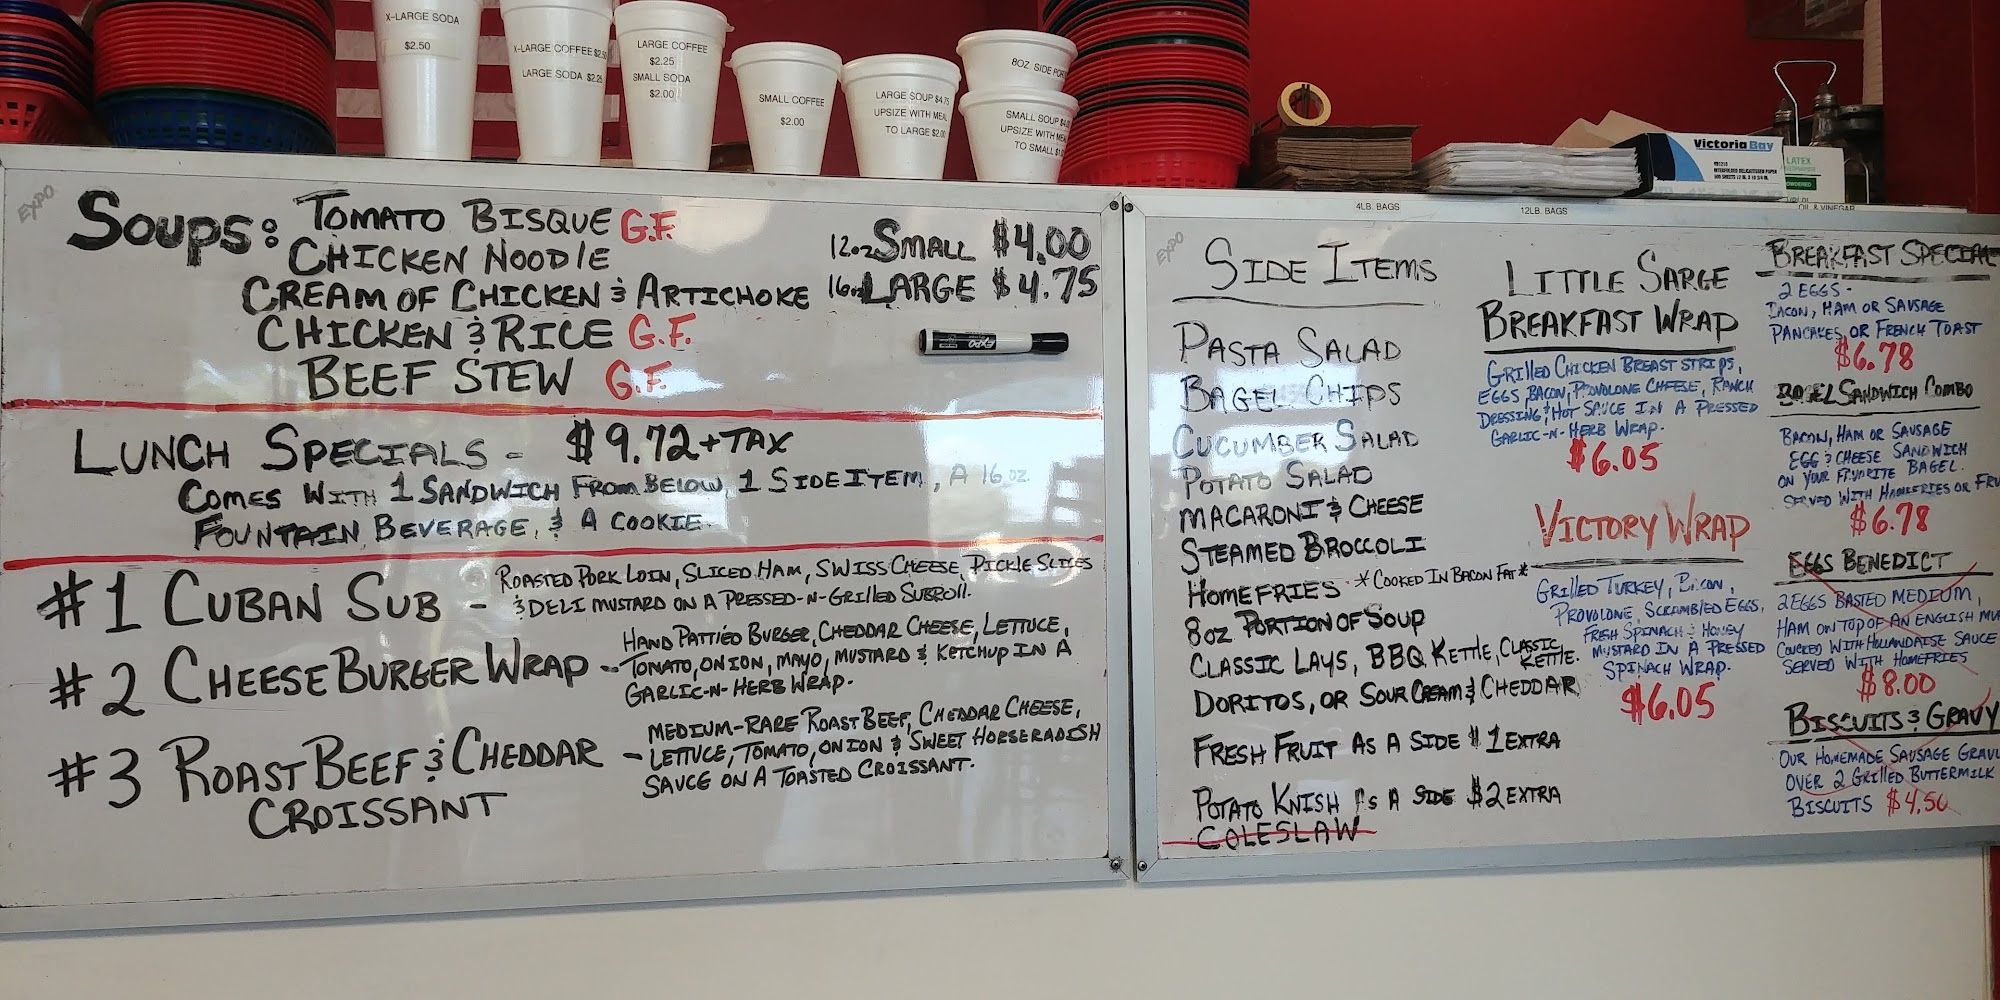 X-LARGE SODA
$2.50
X-LARGE COFFEE $2.50
LARGE SODA $2.25
LARGE COFFEE
$2.25
SMALL SODA
$2.00
SMALL COFFEE
$2.00
LARGE SOUP $4.75
UPSIZE WITH MEAL
TO LARGE $2.00
8OZ. SIDE
SMALL SOUP
UPSIZE WITH MEAL
TO SMALL
Victoria Bay
INTERFOLDED DELICATESSEN PAPER
LATEX
POWDERED
4LB. BAGS
12LB. BAGS
OIL & VINEGAR
EXPO
SOUPS: TOMATO BISQUE G.F.
CHICKEN NOODLE
CREAM OF CHICKEN & ARTICHOKE
CHICKEN & RICE G.F.
BEEF STEW G.F.
12oz SMALL $4.00
16oz LARGE $4.75
EXPO
LUNCH SPECIALS - $9.72 + TAX
COMES WITH 1 SANDWICH FROM BELOW, 1 SIDE ITEM, A 16 oz.
FOUNTAIN BEVERAGE, & A COOKIE.
#1 CUBAN SUB - ROASTED PORK LOIN, SLICED HAM, SWISS CHEESE, PICKLE SLICES
& DELI MUSTARD ON A PRESSED-N-GRILLED SUBROLL.
#2 CHEESEBURGER WRAP - HAND PATTIED BURGER, CHEDDAR CHEESE, LETTUCE,
TOMATO, ONION, MAYO, MUSTARD & KETCHUP IN A
GARLIC-N-HERB WRAP.
#3 ROAST BEEF & CHEDDAR
CROISSANT
- MEDIUM-RARE ROAST BEEF, CHEDDAR CHEESE,
LETTUCE, TOMATO, ONION & SWEET HORSERADISH
SAUCE ON A TOASTED CROISSANT.
EXPO
SIDE ITEMS
PASTA SALAD
BAGEL CHIPS
CUCUMBER SALAD
POTATO SALAD
MACARONI & CHEESE
STEAMED BROCCOLI
HOMEFRIES *COOKED IN BACON FAT*
8oz PORTION OF SOUP
CLASSIC LAYS, BBQ KETTLE, CLASSIC KETTLE.
DORITOS, OR SOUR CREAM & CHEDDAR
FRESH FRUIT AS A SIDE $1 EXTRA
POTATO KNISH AS A SIDE $2 EXTRA
COLESLAW
LITTLE SARGE
BREAKFAST WRAP
GRILLED CHICKEN BREAST STRIPS,
EGGS, BACON, PROVOLONE CHEESE, RANCH
DRESSING & HOT SAUCE IN A PRESSED
GARLIC-N-HERB WRAP.
$6.05
VICTORY WRAP
GRILLED TURKEY, BACON,
PROVOLONE, SCRAMBLED EGGS,
FRESH SPINACH & HONEY
MUSTARD IN A PRESSED
SPINACH WRAP.
$6.05
BREAKFAST SPECIAL
2 EGGS -
BACON, HAM OR SAUSAGE
PANCAKES OR FRENCH TOAST
$6.78
BAGEL SANDWICH COMBO
BACON, HAM OR SAUSAGE
EGG & CHEESE SANDWICH
ON YOUR FAVORITE BAGEL.
SERVED WITH HOMEFRIES OR
$6.78
EGGS BENEDICT
2 EGGS BASTED MEDIUM,
HAM ON TOP OF AN ENGLISH
COVERED WITH HOLLANDAISE SAUCE
SERVED WITH HOMEFRIES
$8.00
BISCUITS & GRAVY
OUR HOMEMADE SAUSAGE GRAVY
OVER 2 GRILLED BUTTERMILK
BISCUITS $4.50